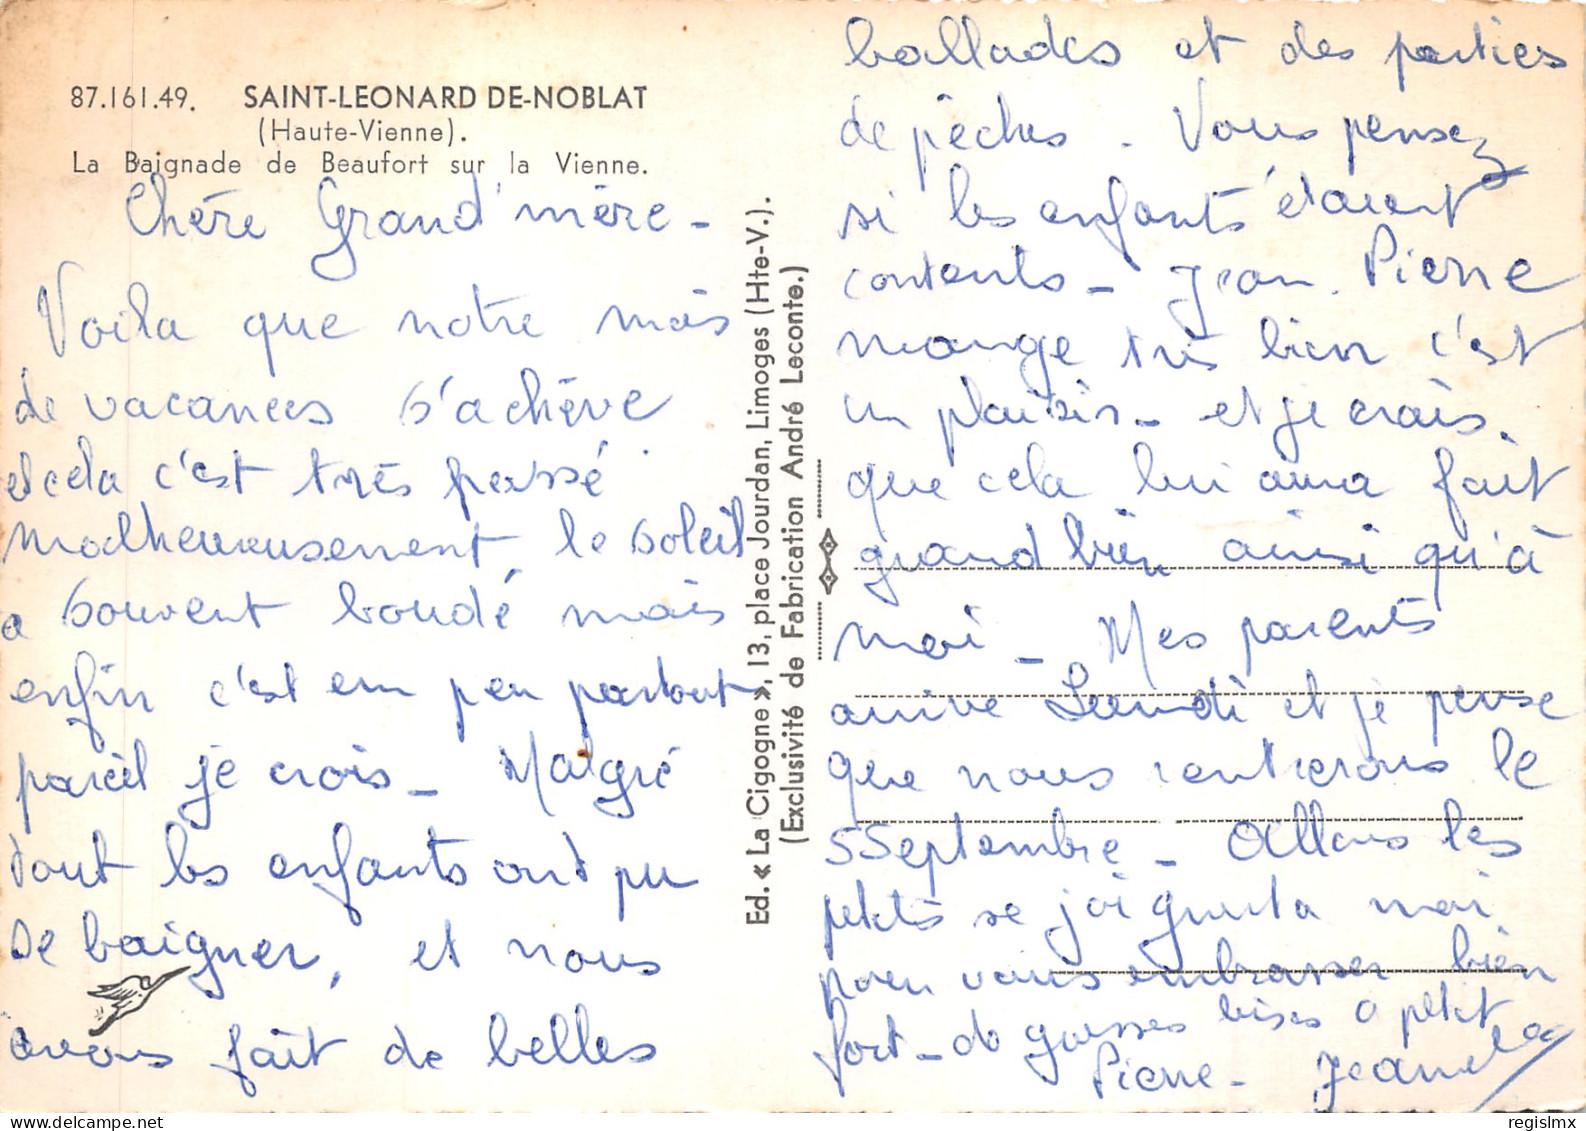 87.161.49. SAINT-LEONARD DE-NOBLAT
(Haute-Vienne).
La Baignade de Beaufort sur la Vienne.
Chère Grand'mère -
Voila que notre mois
de vacances s'achève
et cela c'est très passé
malheureusement, le soleil
a souvent boudé mais
enfin c'est un peu partout
pareil je crois - Malgré
tout les enfants ont pu
se baigner, et nous
avons fait de belles
Ed. « La Cigogne », 13, place Jourdan, Limoges (Hte-V.).
(Exclusivité de Fabrication André Leconte.)
ballades et des parties
de pèches. Vous pensez
si les enfants étaient
contents - Jean Pierre
mange très bien c'est
un plaisir - et je crois
que cela lui aura fait
grand bien ainsi qu'à
moi - Mes parents
arrive Lundi et je pense
que nous rentrerons le
5 Septembre - Allons les
petits se joignent a moi
pour vous embrasser bien
fort - de grosses bises a petit
Pierre - Jeannette
regislmx